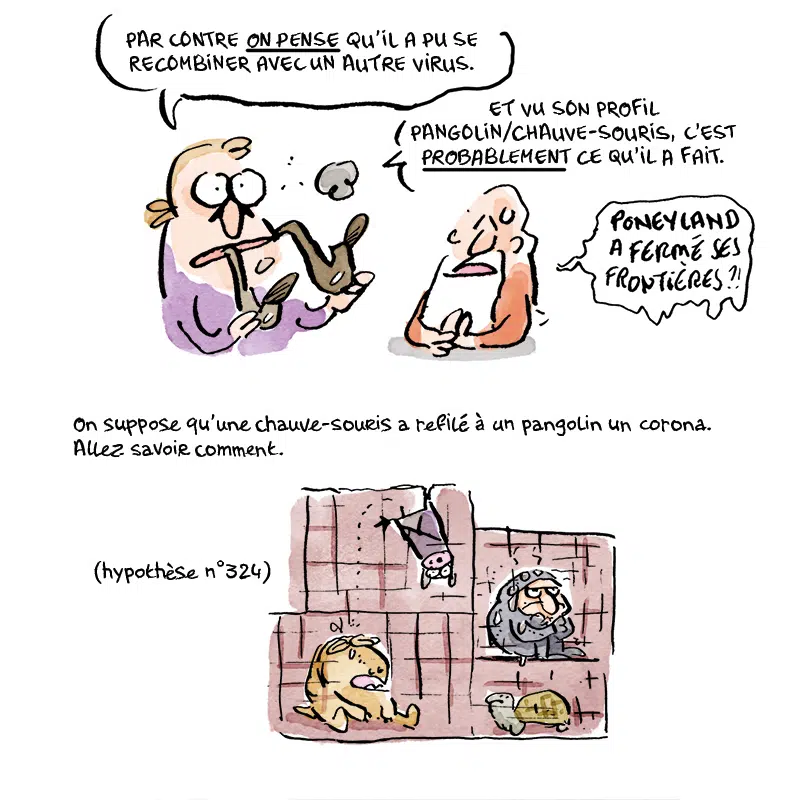 PAR CONTRE ON PENSE QU'IL A PU SE
RECOMBINER AVEC UN AUTRE VIRUS.
ET VU SON PROFIL
PANGOLIN/CHAUVE-SOURIS, C'EST
PROBABLEMENT CE QU'IL A FAIT.
PONEYLAND
A FERMÉ SES
FRONTIÈRES?!
On suppose qu'une chauve-souris a refilé à un pangolin un corona.
Allez savoir comment.
(hypothèse n°324)